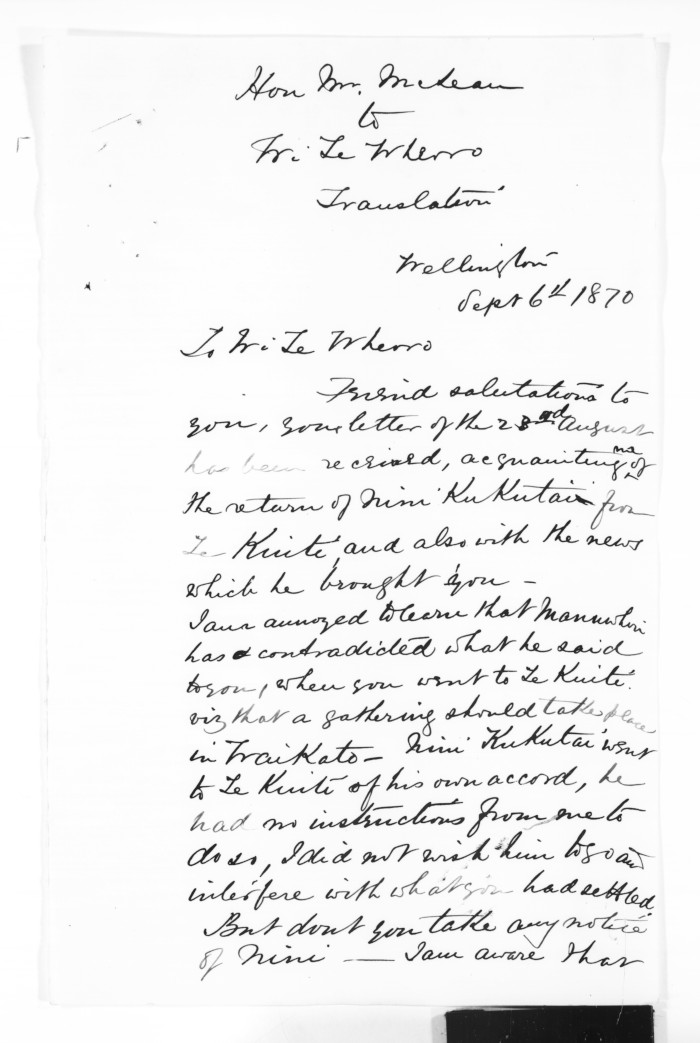 Hon Mr. McLean
to
Wi Te Wheoro
Translation
Wellington
Sept 6th 1870
To Wi Te Wheoro
Friend salutations to
you, your letter of the 23rd August
has been received, acquainting me of
the return of Nini Kukutai from
Te Kuiti, and also with the news
which he brought you -
I am annoyed to learn that Manuwhiri
has contradicted what he said
to you, when you went to Te Kuiti.
viz that a gathering should take place
in Waikato - Nini Kukutai went
to Te Kuiti of his own accord, he
had no instructions from me to
do so, I did not wish him to go and
interfere with what you had settled.
But dont you take any notice
of Nini - I am aware that